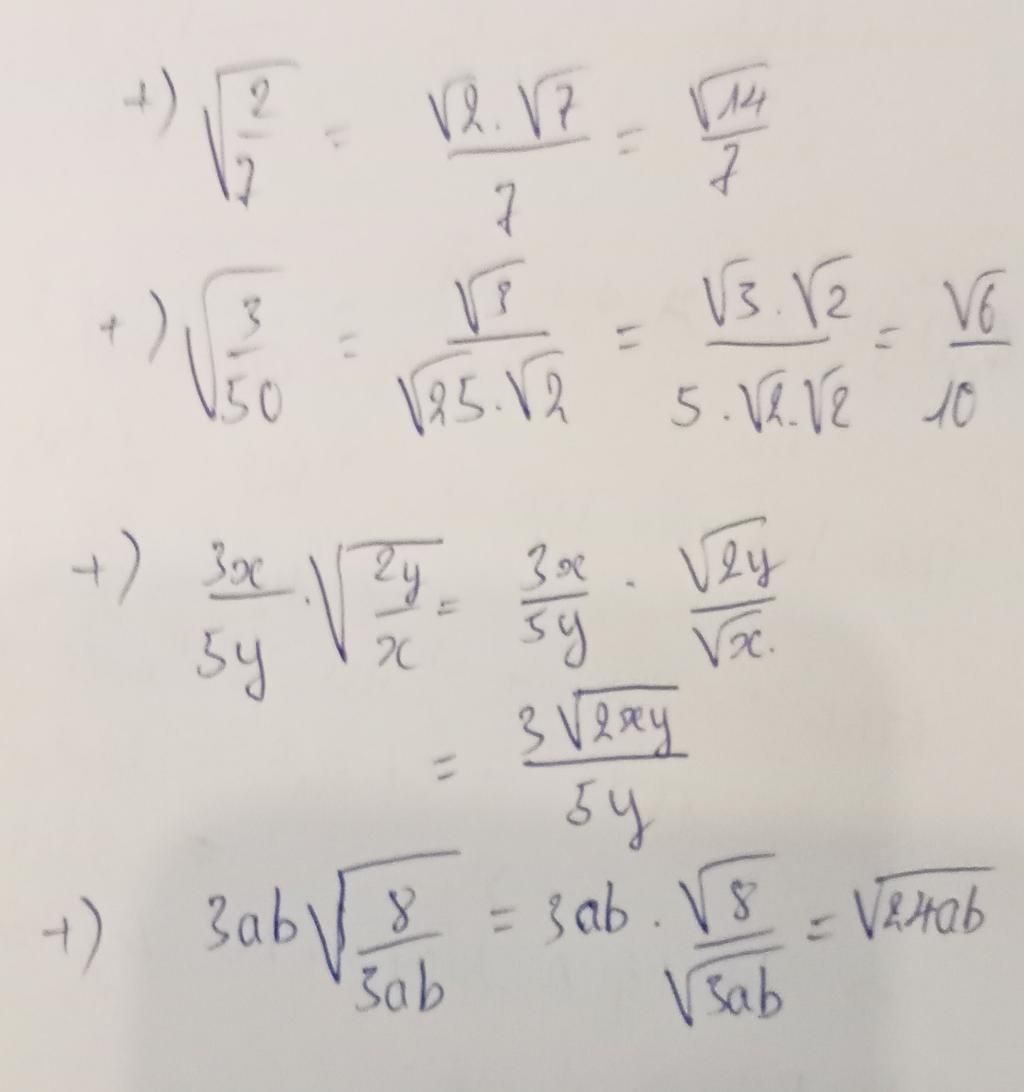 +) √(2/7) = (√2 . √7)/7 = √14/7
+) √(3/50) = √3/(√25 . √2) = (√3 . √2)/(5 . √2 . √2) = √6/10
+) 3x/5y . √(2y/x) = 3x/5y . √2y/√x.
= 3√2xy/5y
+) 3ab√(8/3ab) = 3ab . √8/√3ab = √24ab